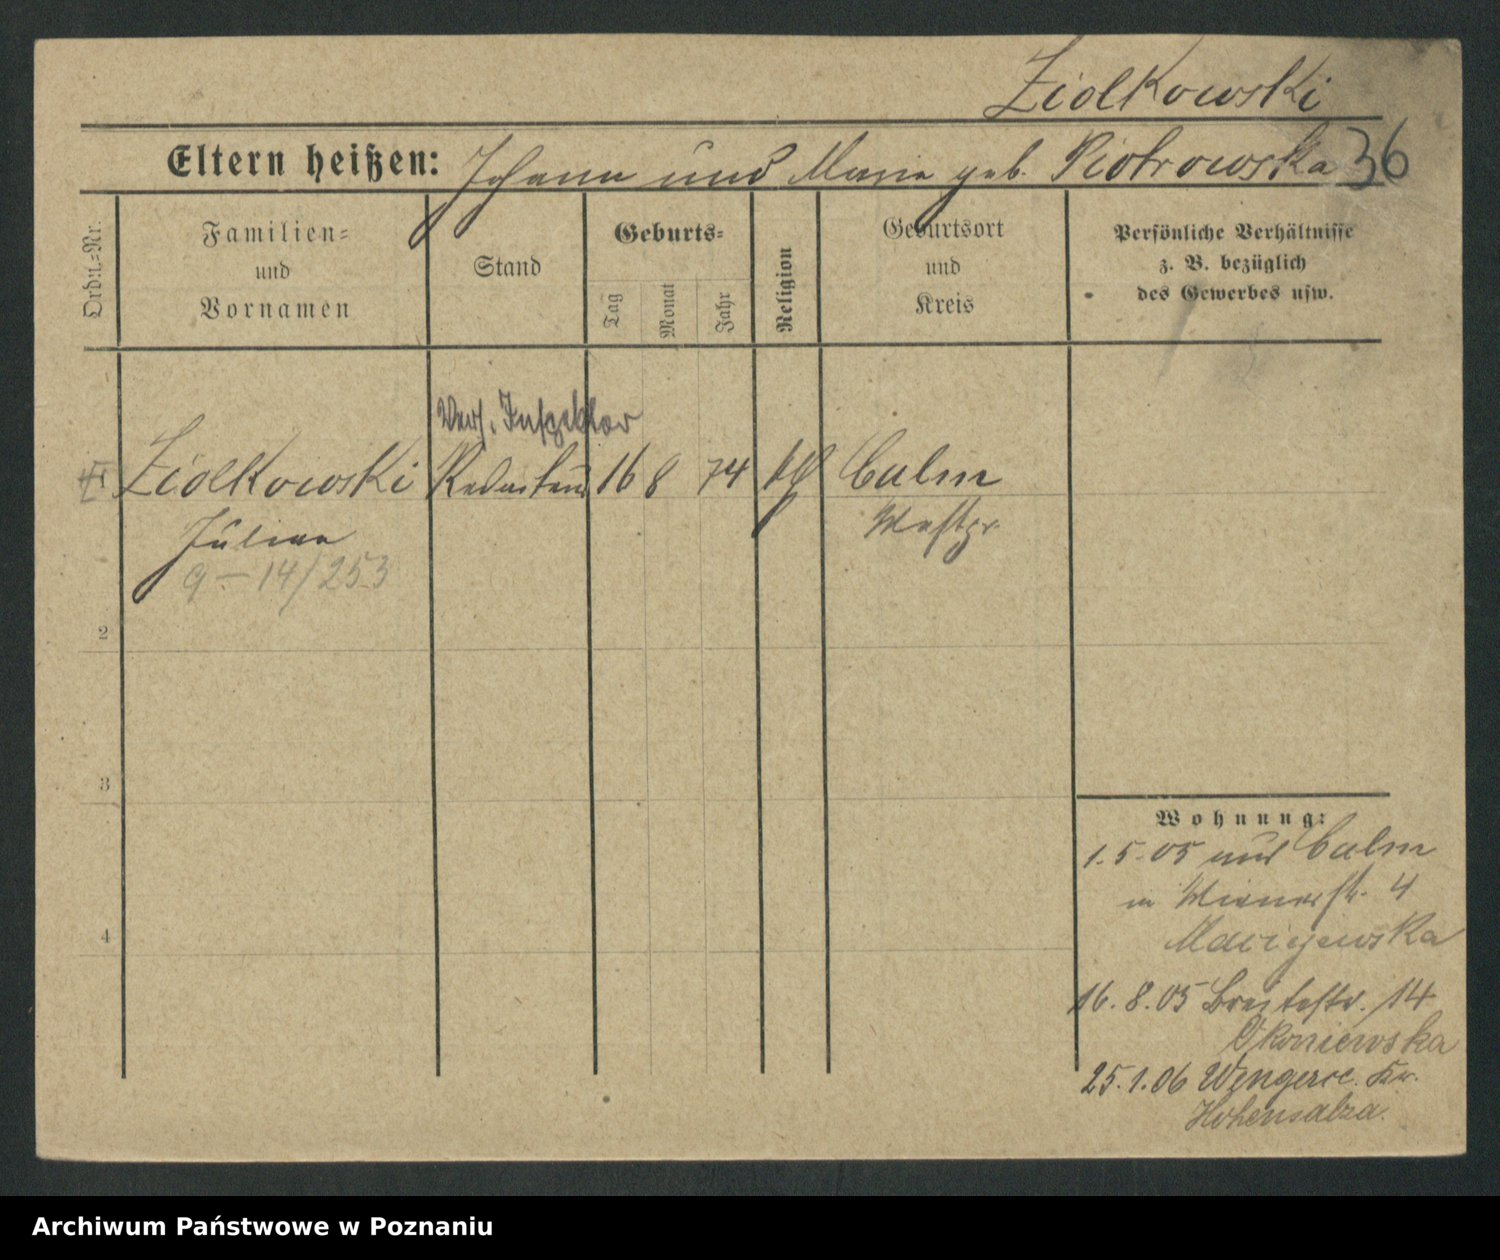 Ziolkowski
Eltern heißen: Johann und Marie geb. Piotrowska 36
Ordn.=Nr.
Familien=
und
Vornamen
Stand
Geburts=
Tag
Monat
Jahr
Religion
Geburtsort
und
Kreis
Persönliche Verhältnisse
z. B. bezüglich
des Gewerbes usw.
Vers. Inspektor
1 Ziolkowski Redakteur 16 8 74 kth Culm
Julian Westpr.
9-14/253
2
3
4
Wohnung:
1.5.05 aus Culm
in Wienerstr. 4
Maciejewska
16.8.05 Breitestr. 14
Okoniewska
25.1.06 Kr.
Hohensalza.
Archiwum Państwowe w Poznaniu